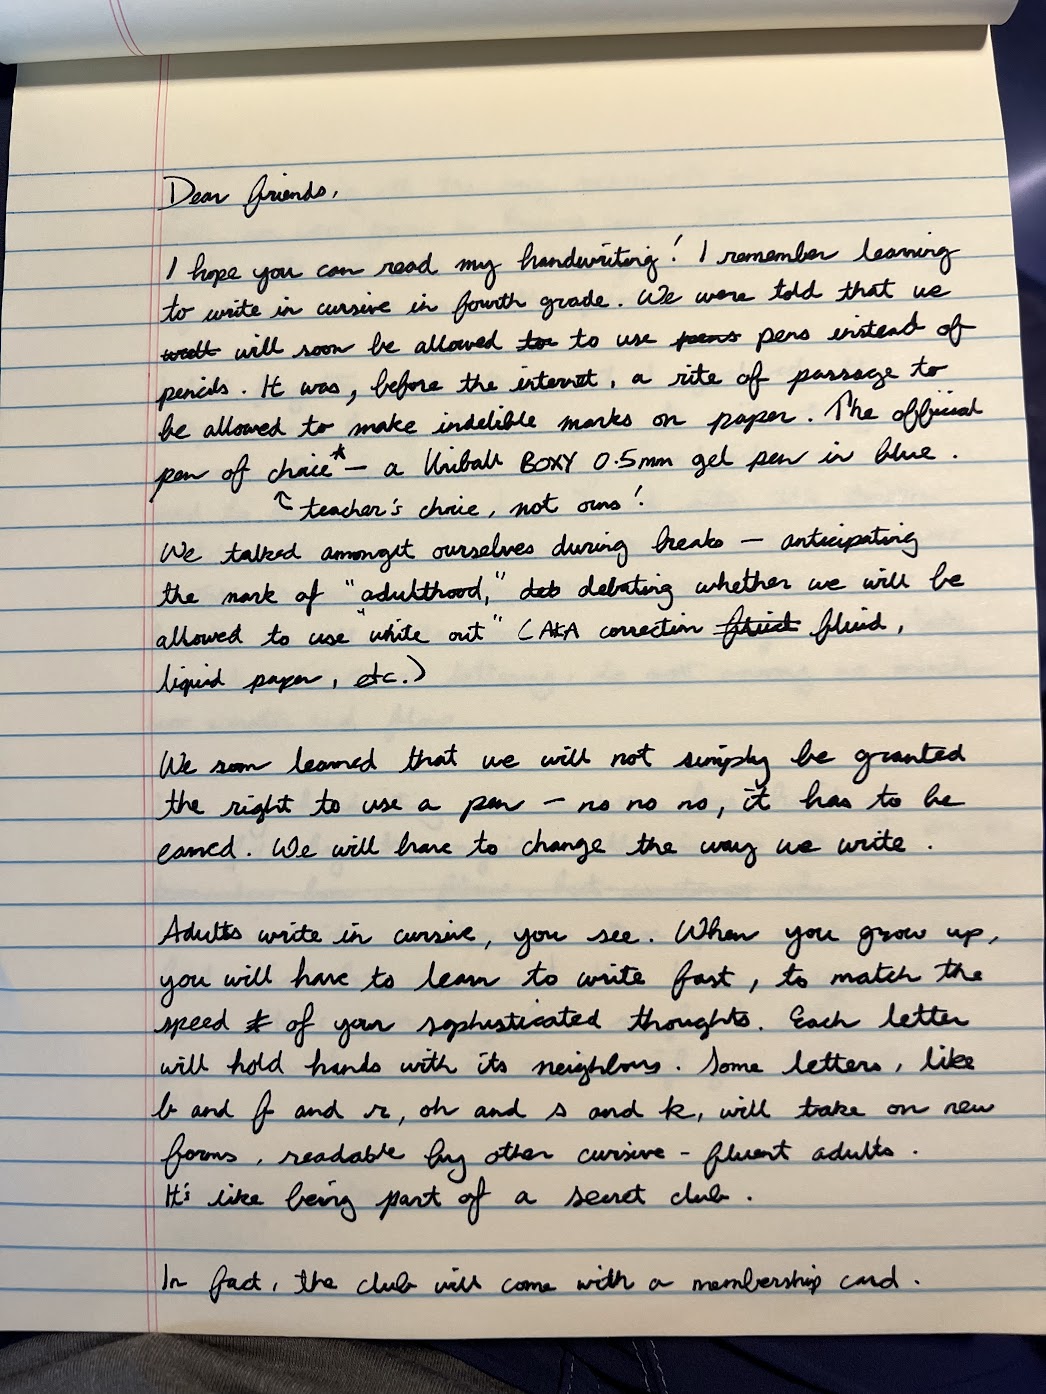 Dear friends,
I hope you can read my handwriting! I remember learning
to write in cursive in fourth grade. We were told that we
will soon be allowed to use pens instead of
pencils. It was, before the internet, a rite of passage to
be allowed to make indelible marks on paper. The official
pen of choice* — a Uniball BOXY 0.5mm gel pen in blue.
↑ teacher's choice, not ours!
We talked amongst ourselves during breaks — anticipating
the mark of "adulthood," debating whether we will be
allowed to use "white out" (AKA correction fluid,
liquid paper, etc.)
We soon learned that we will not simply be granted
the right to use a pen — no no no, it has to be
earned. We will have to change the way we write.
Adults write in cursive, you see. When you grow up,
you will have to learn to write fast, to match the
speed of your sophisticated thoughts. Each letter
will hold hands with its neighbours. Some letters, like
b and f and r, oh and s and k, will take on new
forms, readable by other cursive-fluent adults.
It's like being part of a secret club.
In fact, the club will come with a membership card.